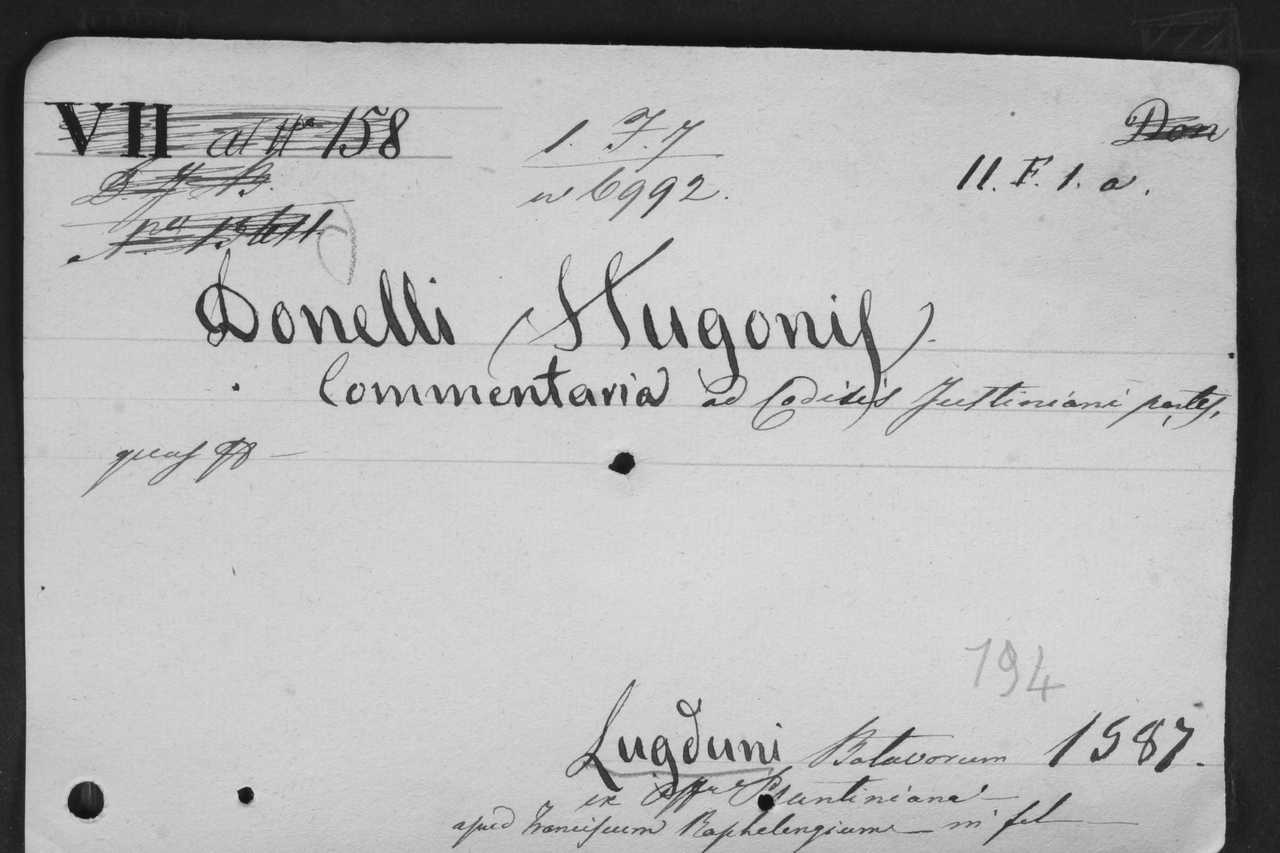 VII al II 158
1. F. 7
Don
n 6992.
11. F. 1. a.
Donelli Hugonis
Commentaria ad Codicis Justiniani partes,
quas
194
Lugduni Batavorum 1587.
ex Offna Plantiniana
apud Franciscum Raphelengium in fol